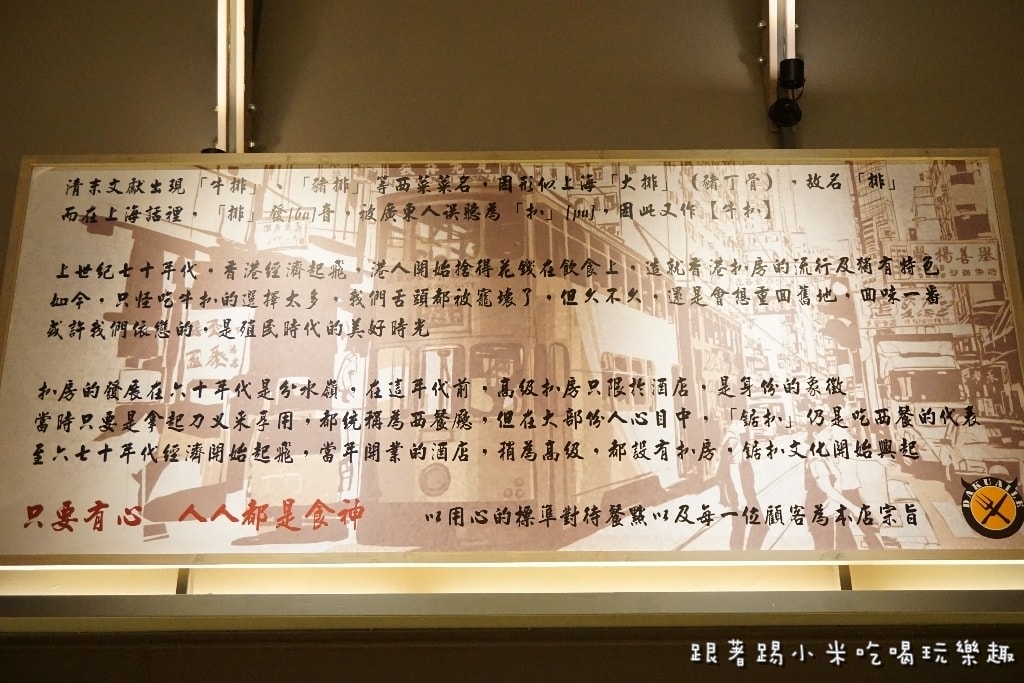 清末文獻出現「牛排」 「豬排」等西菜菜名,圖形似上海「大排」(豬丁骨),故名「排」
而在上海話裡,「排」發[ba]音,被廣東人误聽為「扒」[pa],因此又作【牛扒】
上世紀七十年代,香港經濟起飛,港人開始捨得花錢在飲食上,造就香港扒房的流行及獨有特色
如今,只怪吃牛扒的選擇太多,我們舌頭都被寵壞了,但久不久,還是會想重回舊地,回味一番
或許我們依戀的,是殖民時代的美好時光
扒房的發展在六十年代是分水嶺,在這年代前,高級扒房只限於酒店,是身份的象徵
當時只要是拿起刀叉来享用,都統稱為西餐廳,但在大部份人心目中,「鋸扒」仍是吃西餐的代表
至六七十年代經濟開始起飛,當年開業的酒店,稍為高級,都設有扒房,鋸扒文化開始興起
只要有心 人人都是食神
以用心的標準對待餐點以及每一位顧客為本店宗旨
舉善揚
跟著踢小米吃喝玩樂趣